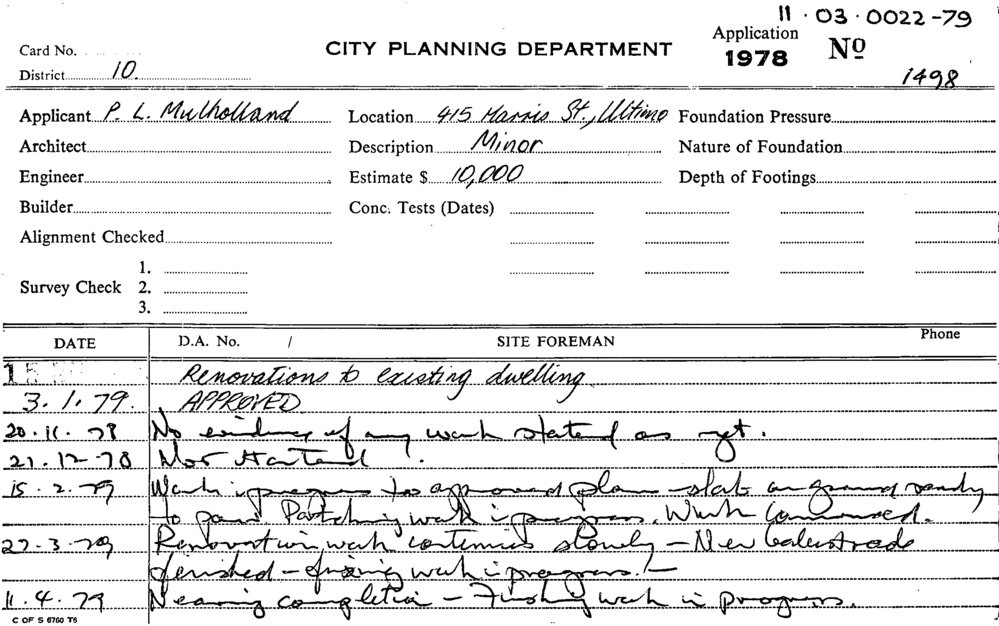 11 · 03 · 0022-79
Card No.
CITY PLANNING DEPARTMENT
Application
1978
Nº
1498
District 10
Applicant P. L. Mulholland
Location 415 Harris St., Ultimo
Foundation Pressure
Architect
Description Minor
Nature of Foundation
Engineer
Estimate $ 10,000
Depth of Footings
Builder
Conc. Tests (Dates)
Alignment Checked
Survey Check
1.
2.
3.
DATE
D.A. No. /
SITE FOREMAN
Phone
Renovations to existing dwelling
3.1.79. APPROVED
20.11.78 No evidence of any work started as yet.
21.12.78 Not started.
15.2.79 Work in progress to approved plans - slab on ground ready
to pour Patching work in progress. Work continued.
27.3.79 Renovation work continues slowly - New balustrade
finished - fixing work in progress. -
11.4.79 Nearing completion - Finishing work in progress.
C OF S 6760 T5